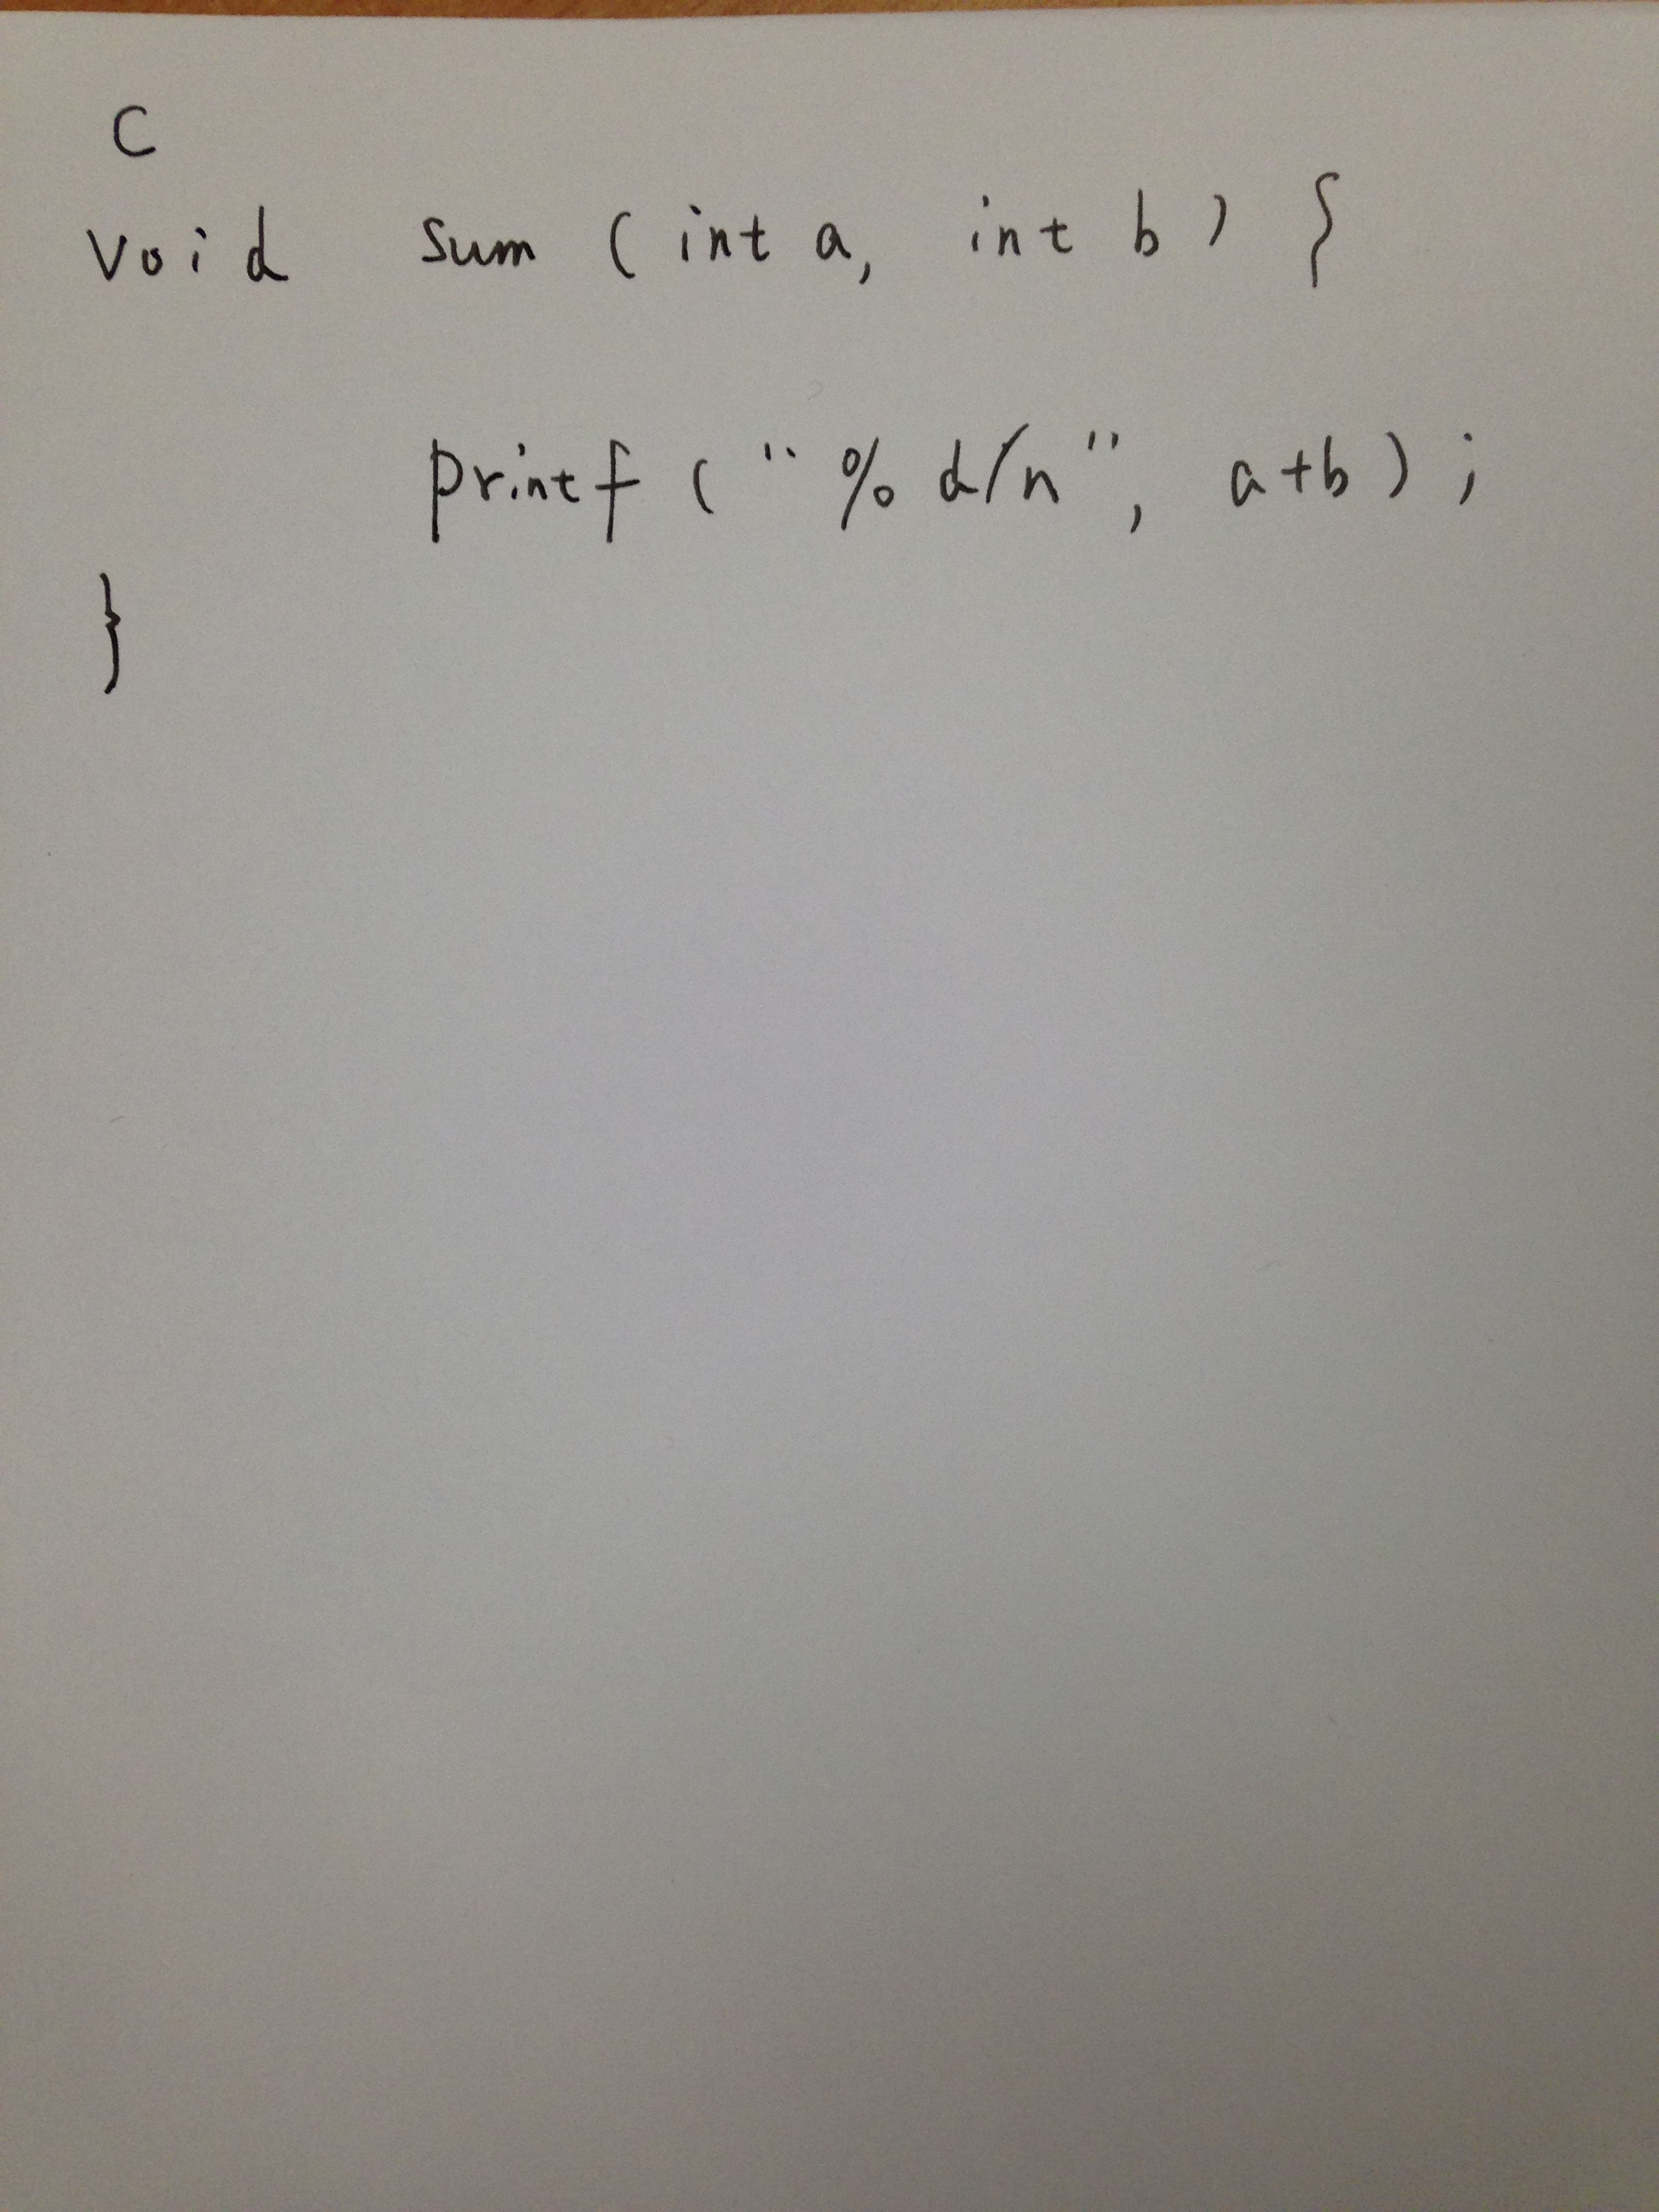 C
void sum (int a, int b) {
printf ("%d/n", a+b);
}